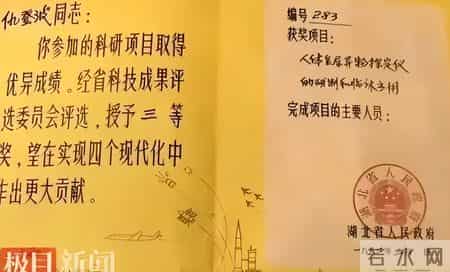 仇登波同志：
你参加的科研项目取得
优异成绩。经省科技成果评
选委员会评选，授予三等
奖，望在实现四个现代化中
作出更大贡献。
极目新闻
编号 283
获奖项目：
人体金属异物探定仪
的研制和临床应用
完成项目的主要人员：
湖北省人民政府
湖北省人民政府
一九
若水网